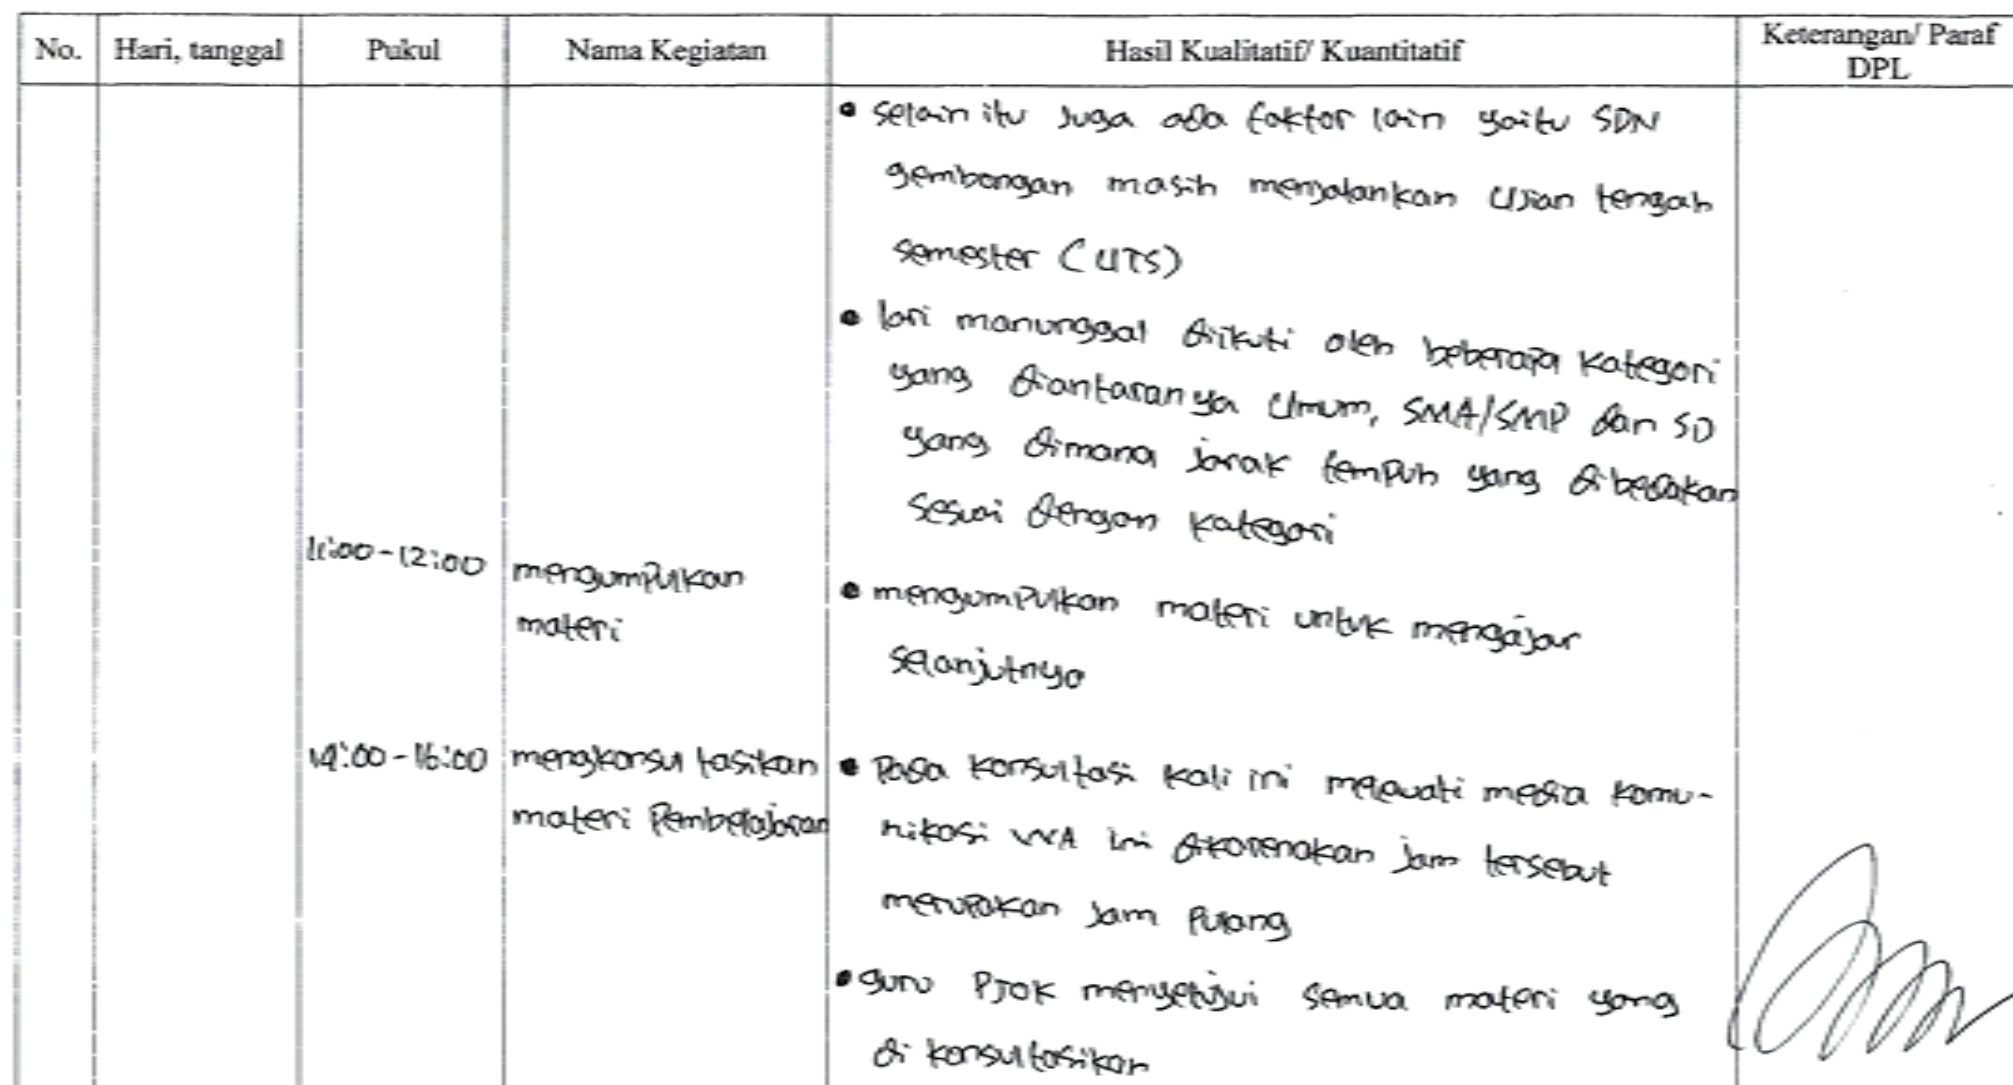 No. Hari, tanggal Pukul Nama Kegiatan Hasil Kualitatif/ Kuantitatif Keterangan/ Paraf DPL
• selain itu juga ada faktor lain yaitu SDN
gembongan masih menjalankan Ujian tengah
semester (UTS)
• lari manunggal diikuti oleh beberapa kategori
yang diantaranya Umum, SMA/SMP dan SD
yang dimana jarak tempuh yang dibedakan
sesuai dengan kategori
11:00-12:00 mengumpulkan
materi
• mengumpulkan materi untuk mengajar
selanjutnya
14:00-16:00 mengkonsultasikan
materi Pembelajaran
• Pada konsultasi kali ini melewati media komu-
nikasi WA ini dikarenakan jam tersebut
merupakan jam pulang
• guru PJOK menyetujui semua materi yang
di konsultasikan